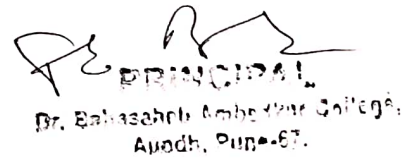 PRINCIPAL
Dr. Babasaheb Ambedkar College,
Aundh, Pune-67.